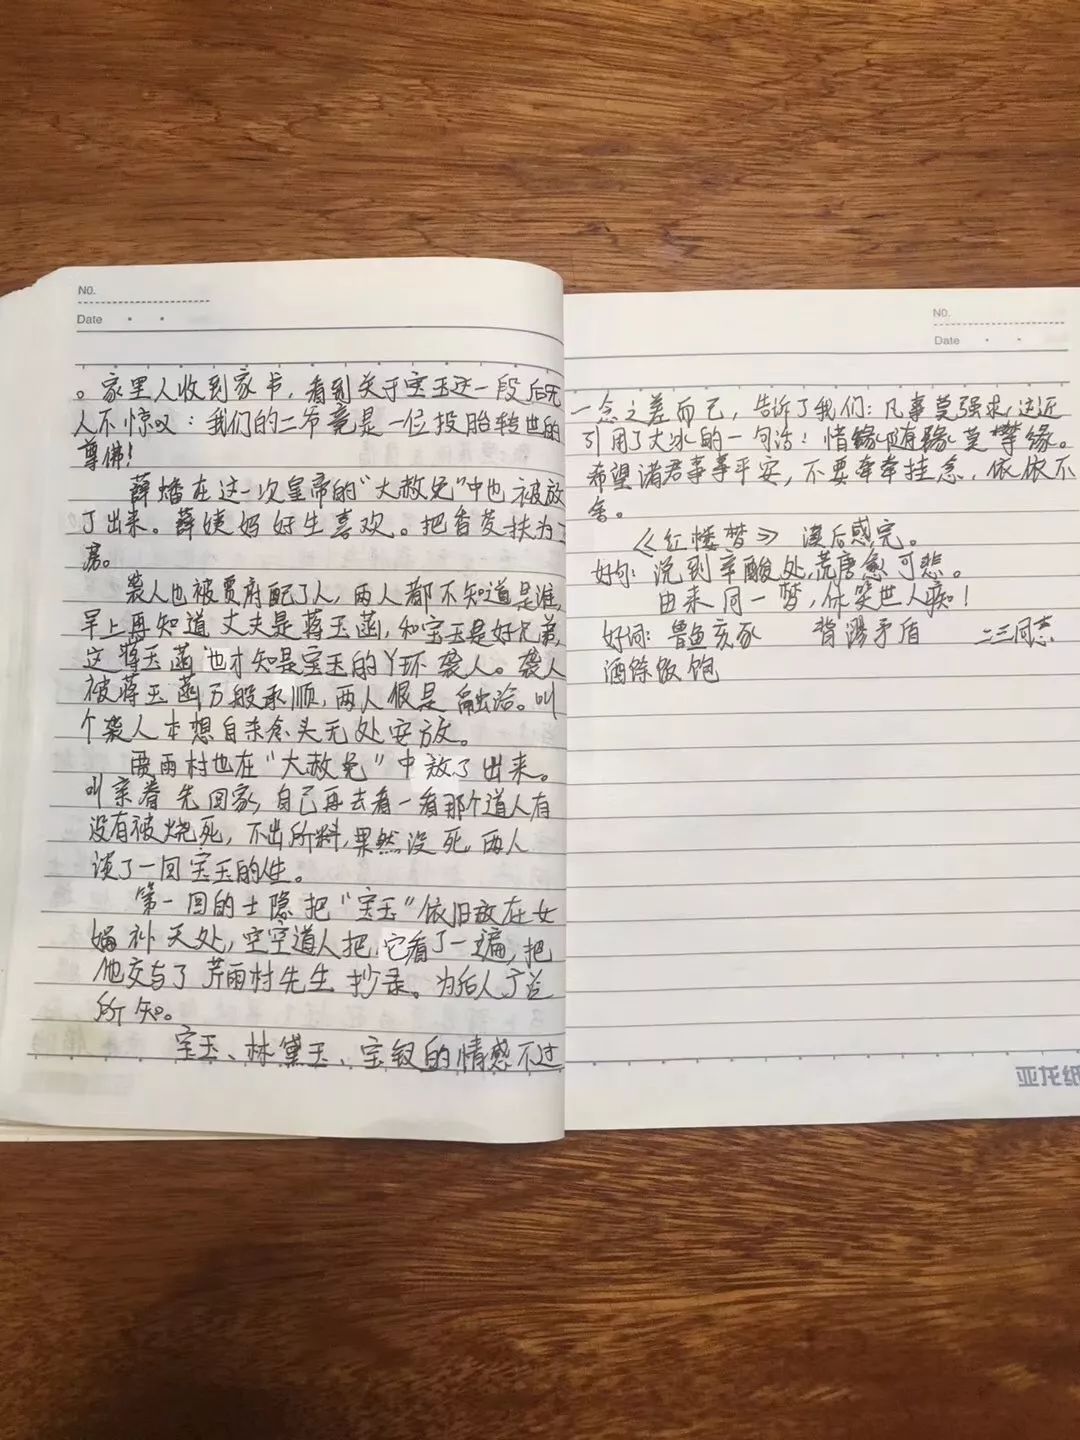 NO.
Date
。家里人收到家书，看到关于宝玉这一段后无
人不惊叹：我们的二爷竟是一位投胎转世的
尊佛！
薛蟠在这一次皇帝的“大赦免”中也被放
了出来。薛姨妈好生喜欢。把香菱扶为正
房。
袭人也被贾府配了人，两人都不知道是谁，
早上再知道丈夫是蒋玉菡，和宝玉是好兄弟，
这蒋玉菡也才知是宝玉的丫环袭人。袭人
被蒋玉菡万般承顺，两人很是融洽。叫
个袭人本想自杀念头无处安放。
贾雨村也在“大赦免”中放了出来。
叫亲眷先回家，自己再去看一看那个道人有
没有被烧死，不出所料，果然没死，两人
谈了一回宝玉的人生。
第一回的士隐把“宝玉”依旧放在女
娲补天处，空空道人把它看了一遍，把
他交与了芹雨村先生抄录。为后人广泛
所知。
宝玉、林黛玉、宝钗的情感不过
NO.
Date
一念之差而已，告诉了我们：凡事莫强求，这近
引用了大冰的一句话：惜缘随缘莫攀缘。
希望诸君事事平安，不要牵牵挂念，依依不
舍。
《红楼梦》读后感完。
好句：说到辛酸处，荒唐愈可悲。
由来同一梦，休笑世人痴！
好词：鲁鱼亥豕 背谬矛盾 二三同志
酒馀饭饱
亚龙纸